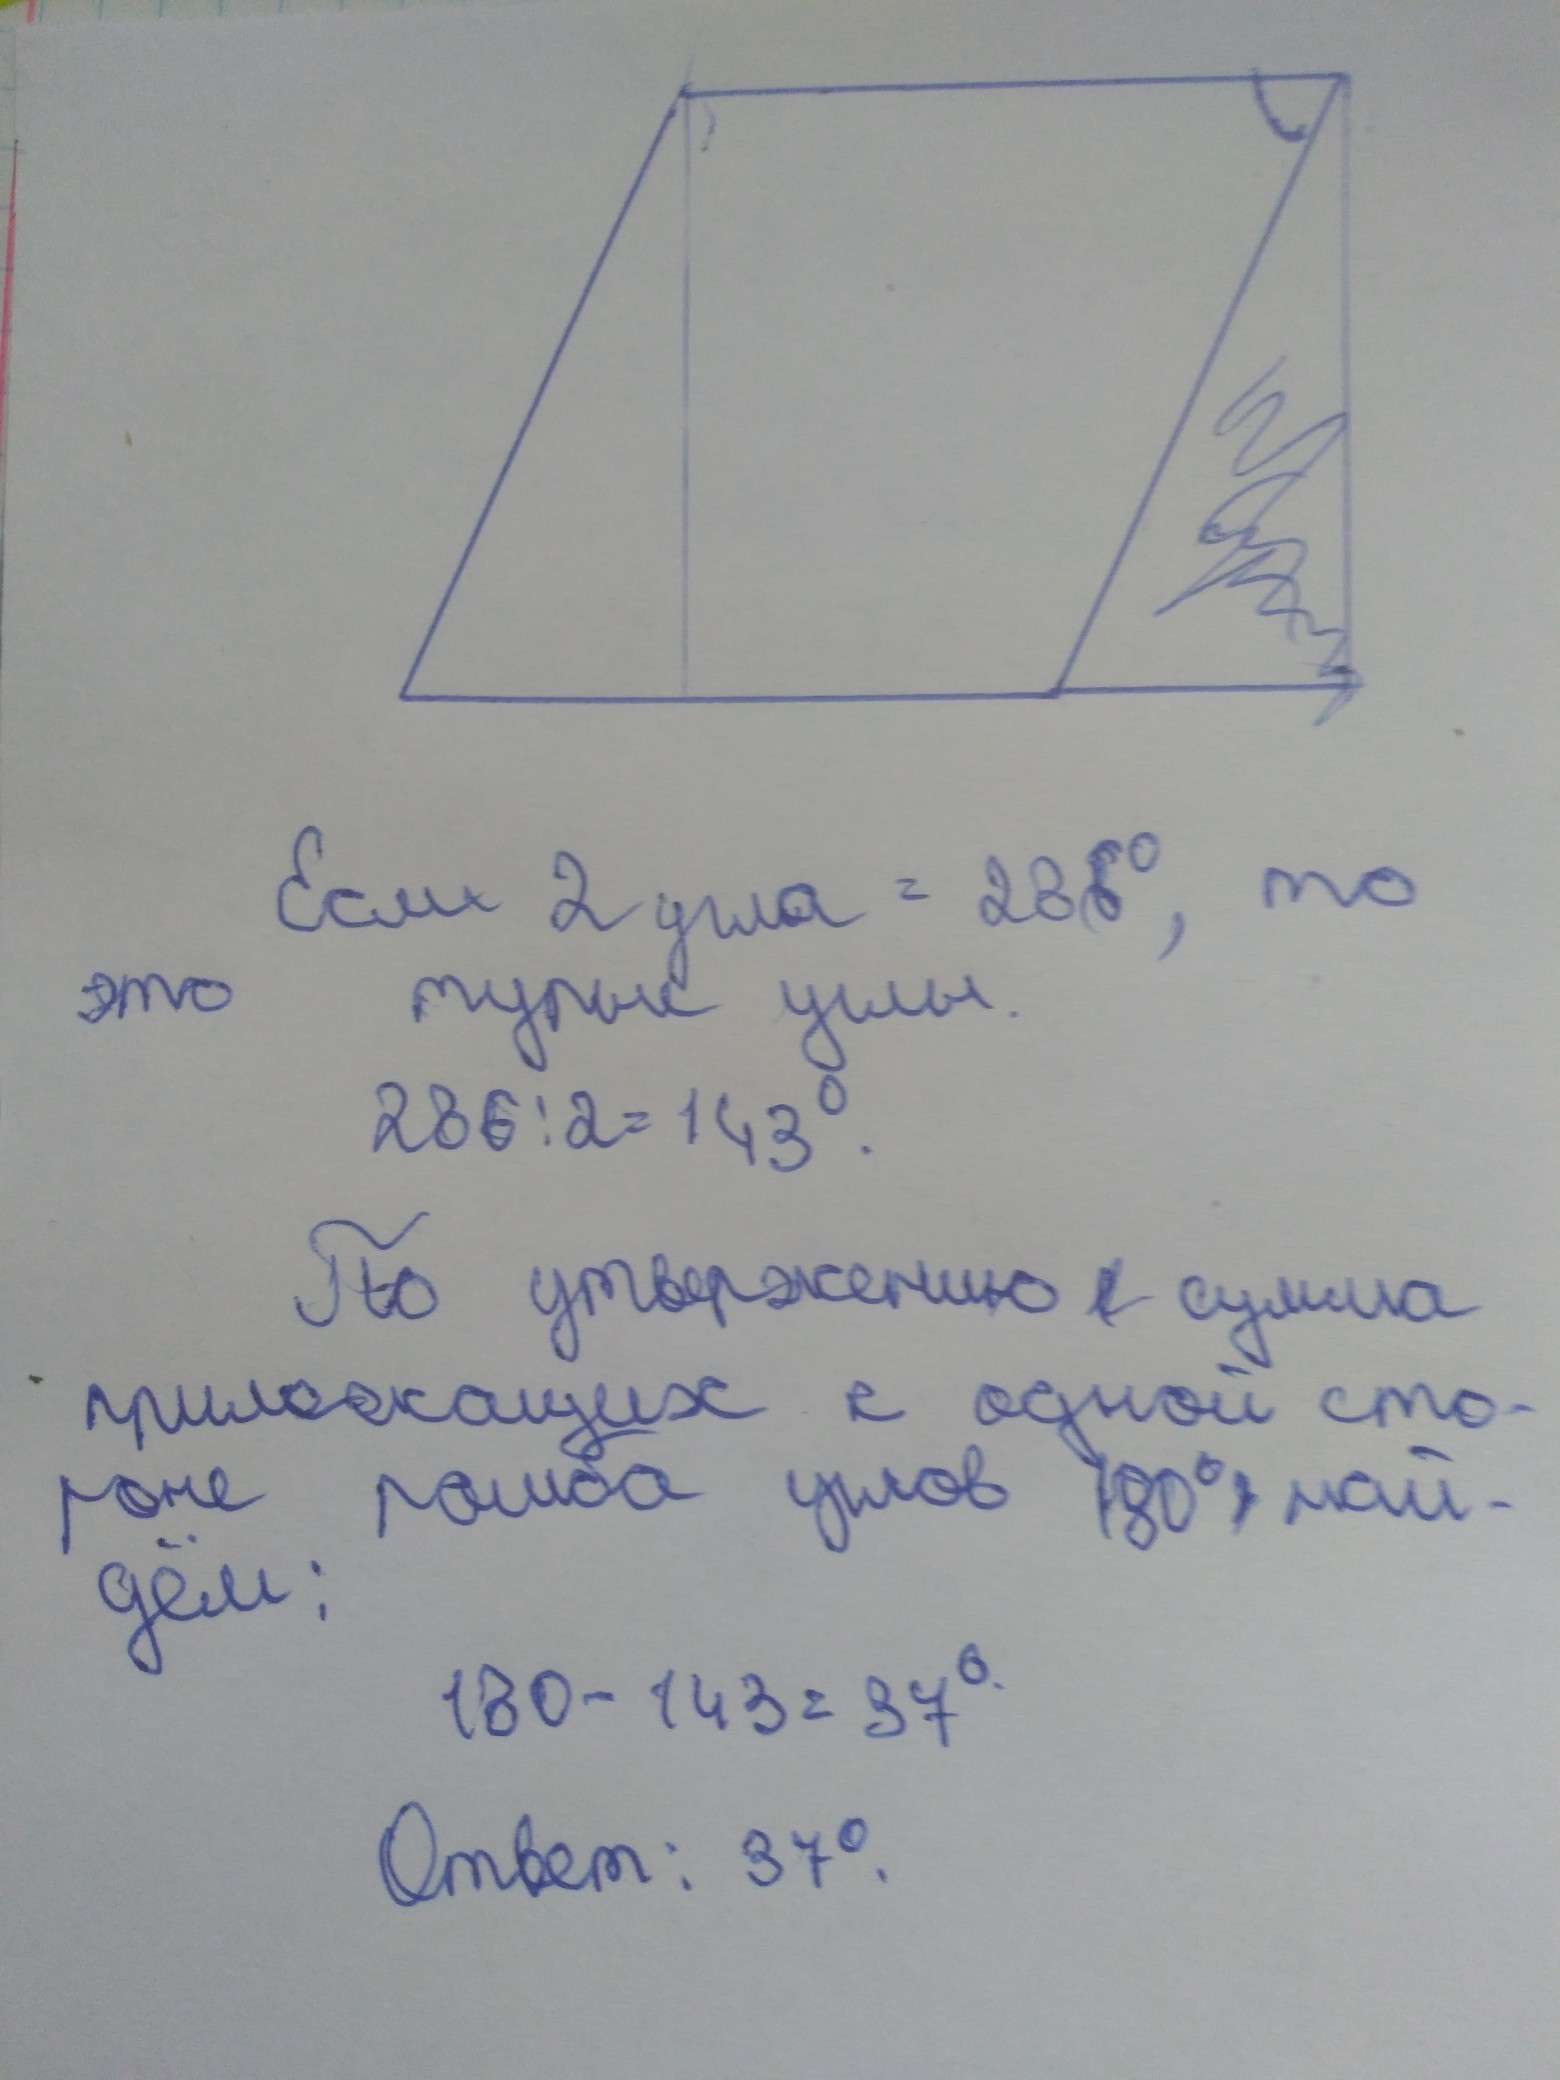 Если 2 угла = 286°, то
это тупые углы.
286:2=143°.
По утвержению сумма
прилежащих к одной сто-
роне ромба углов 180°, най-
дём:
180-143=37°.
Ответ: 37°.